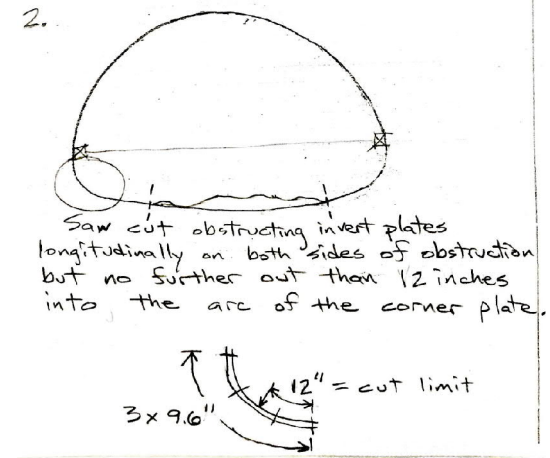 2.
Saw cut obstructing invert plates
longitudinally on both sides of obstruction
but no further out than 12 inches
into the arc of the corner plate.
12" = cut limit
3 x 9.6"